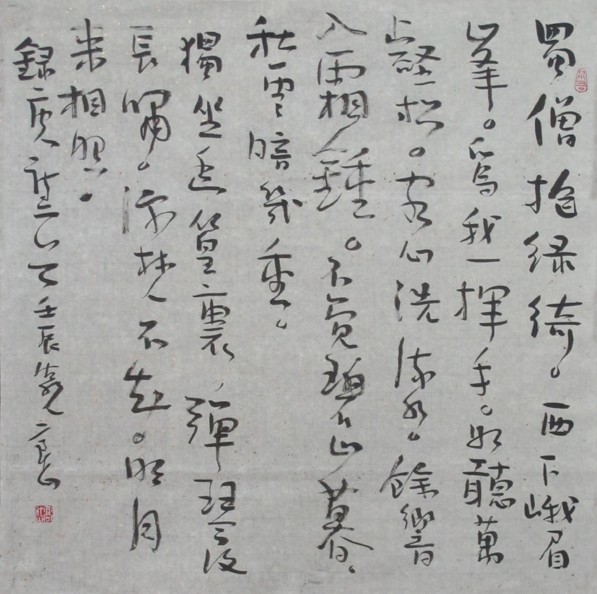 蜀僧抱綠綺。西下峨眉
峰。為我一揮手。如聽萬
壑松。客心洗流水。餘響
入霜鐘。不覺碧山暮、
秋雲暗幾重。
獨坐幽篁裏，彈琴復
長嘯。深林人不知。明月
來相照。
錄唐詩二首壬辰